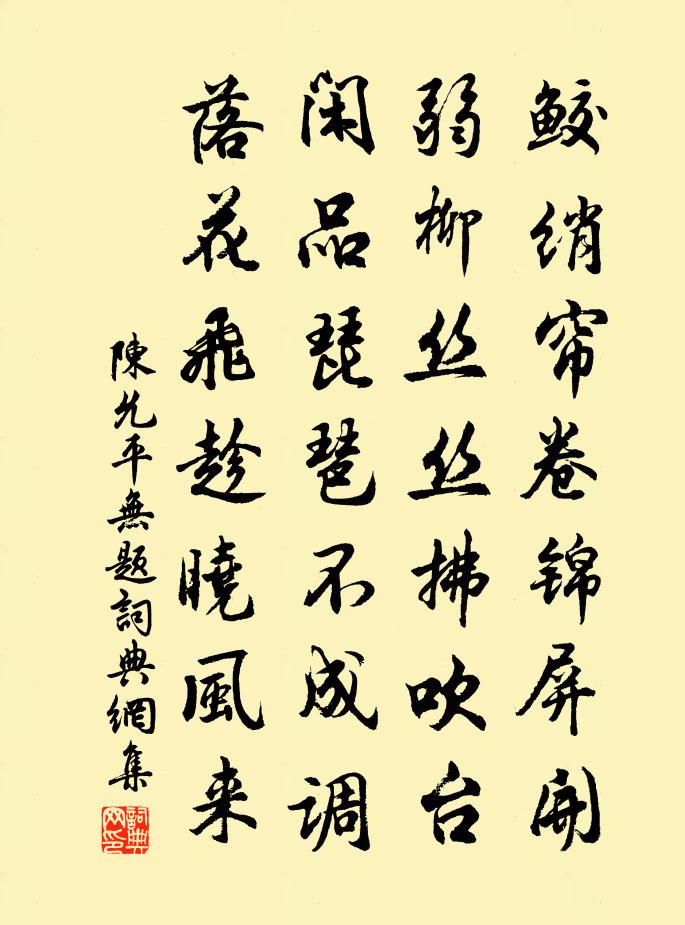 鲛绡帘卷锦屏开
弱柳丝丝拂吹台
闲品琵琶不成调
落花飞趁晓风来
陳允平無题詞典網集
詞典網印